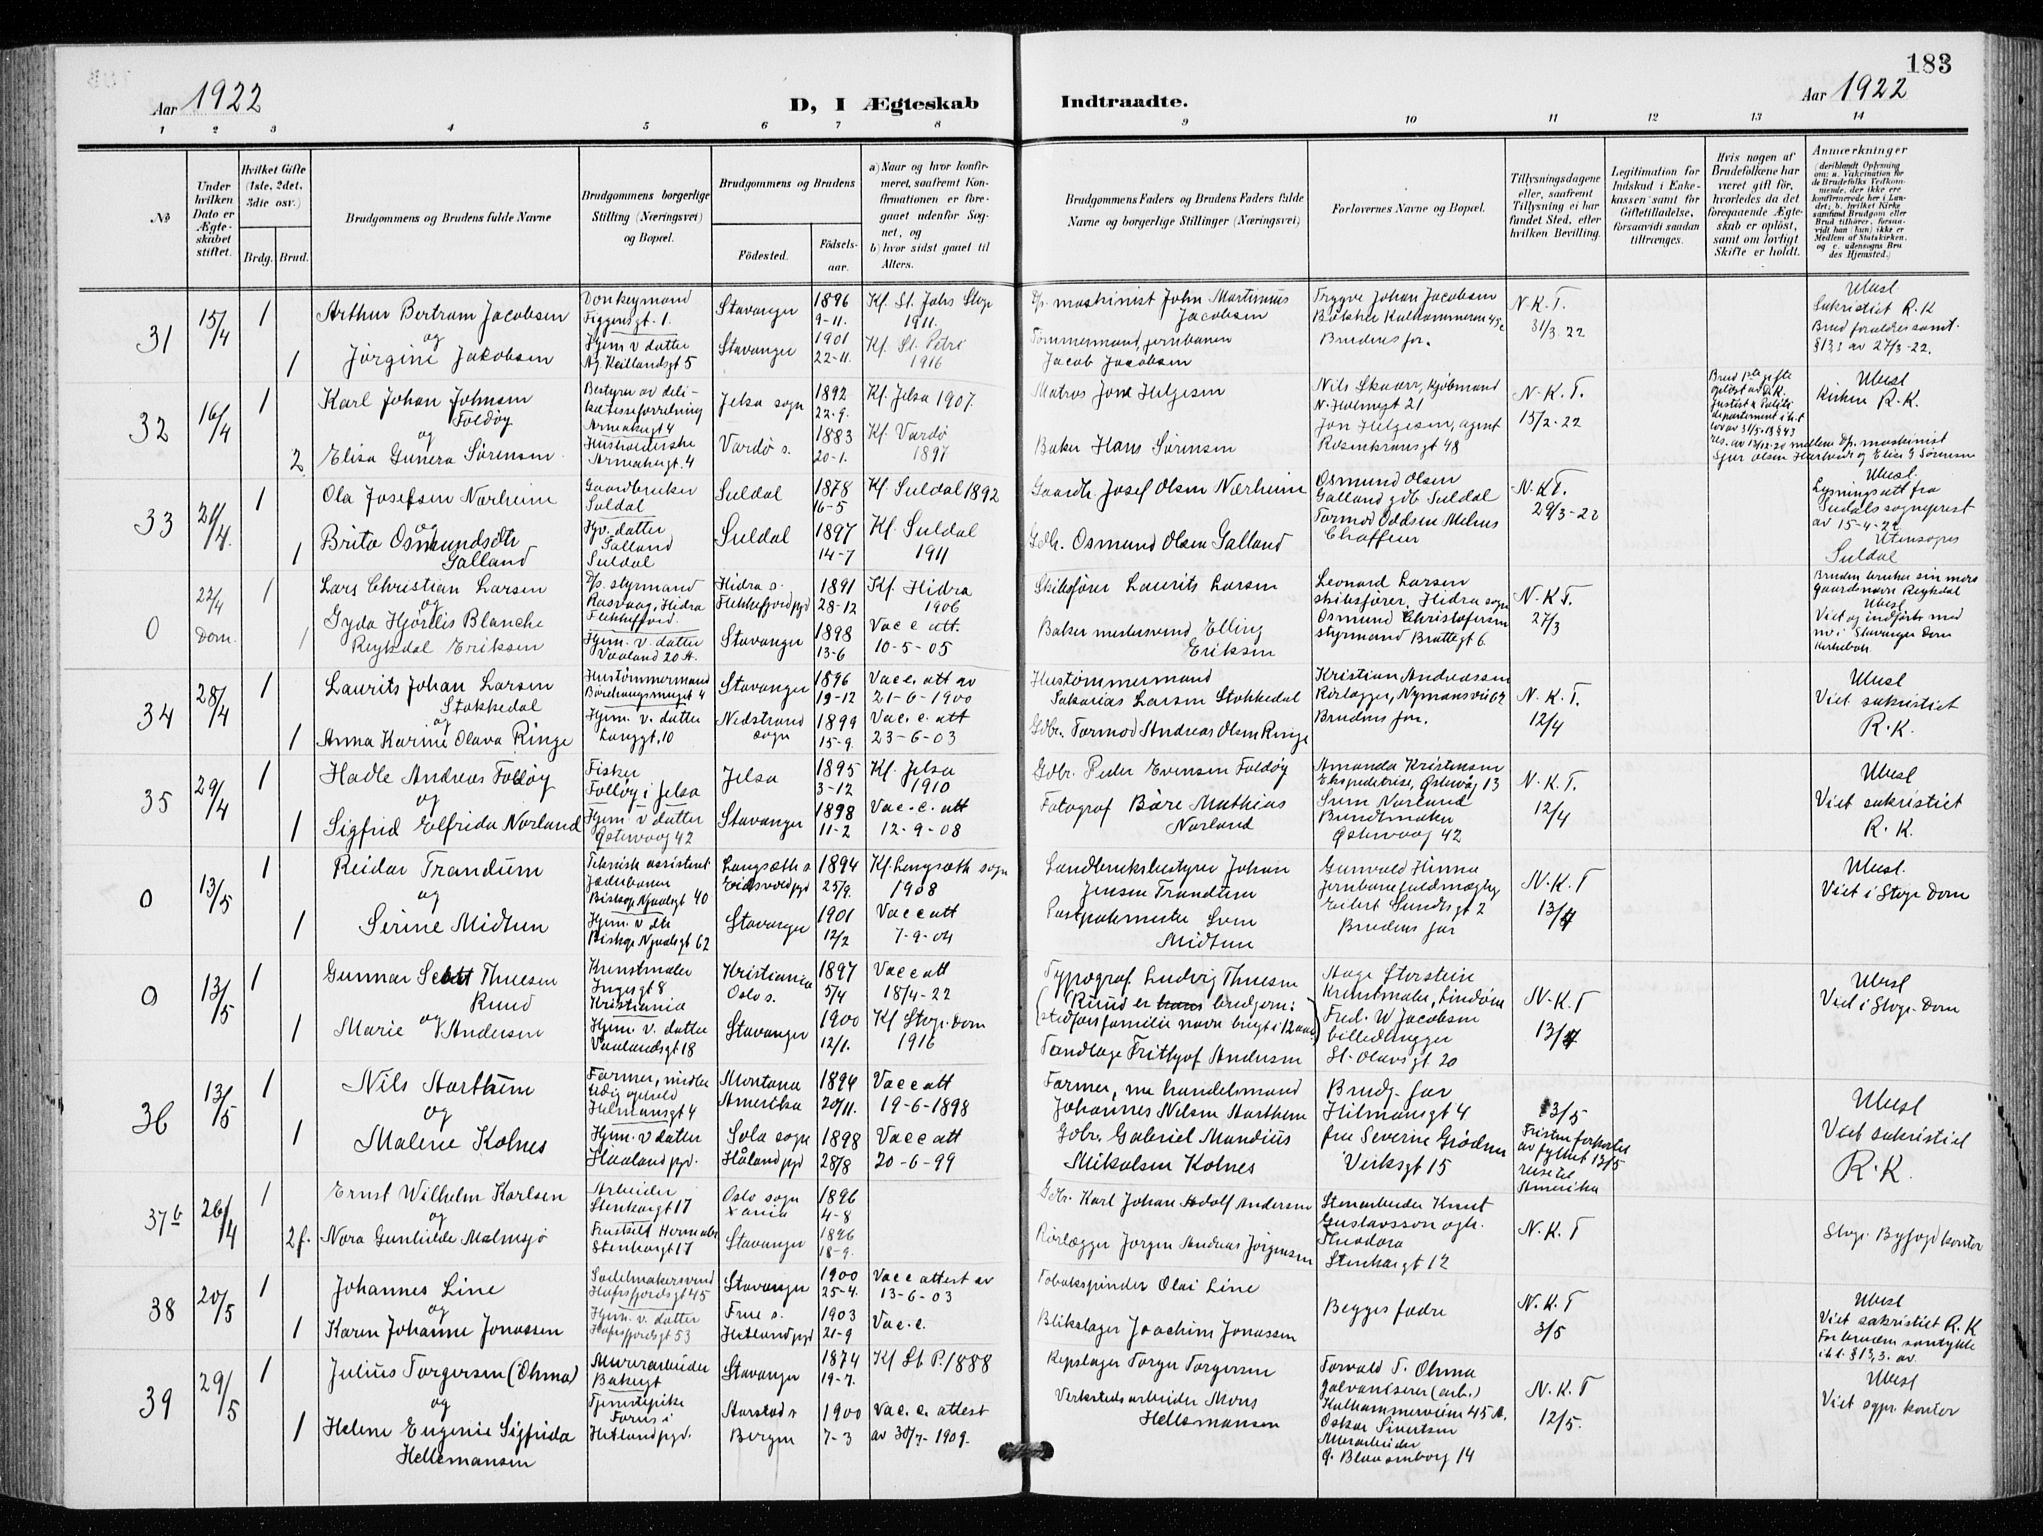 183
Aar 1922
D, I Ægteskab
Indtraadte.
Aar 1922
1 2 3 4 5 6 7 8 9 10 11 12 13 14
No
Under hvilken Dato er Ægteskabet stiftet.
Hvilket Gifte (1ste, 2det, 3die osv.)
Brdg. Brud.
Brudgommens og Brudens fulde Navne
Brudgommens borgerlige Stilling (Næringsvei) og Bopæl.
Brudgommens og Brudens
Födested.
Födselsaar.
a) Naar og hvor konfirmeret, saafremt Konfirmationen er foregaaet udenfor Sognet, og
b) hvor sidst gaaet til Alters.
Brudgommens Faders og Brudens Faders fulde Navne og borgerlige Stillinger (Næringsvei)
Forlovernes Navne og Bopæl.
Tillysningsdagene eller, saafremt Tillysning ei har fundet Sted, efter hvilken Bevilling.
Legitimation for Indskud i Enkekassen samt for Giftetilladelse, forsaavidt saadan tiltrænges.
Hvis nogen af Brudefolkene har været gift før, hvorledes da det foregaaende Ægteskab er oplöst, samt om lovligt Skifte er holdt.
Anmærkninger
(deriblandt Oplysning om: a. Vaccination for de Brudefolks Vedkommende, der ikke ere konfirmerede her i Landet; b. hvilket Kirkesamfund Brudgom eller Brud tilhører, forsaavidt han (hun) ikke er Medlem af Statskirken, og c. udensogns Brudes Hjemsted.)
31
15/4
1
Arthur Bertram Jacobsen
og
1
Jørgine Jakobsen
Donkeymand
Figgensgt. 1.
Hjem. v datter
Ag Keillandsgt 5
Stavanger
Stavanger
1896
9-11.
1901
22-11.
Kf. St. Johs Stvgr
1911.
Kf. St. Petri
1916
D/s. maskinist John Martinius
Jacobsen
Tømmermand, jernbanen
Jacob Jacobsen
Trygve Johan Jacobsen
Bøkker Kalhammeren 45c
Brudens far.
N.K.T.
31/3. 22
Ubesl
Sakristiet R.K
Brud forældresamt.
§13,1 av 27/3-22.
32
16/4
1
Karl Johan Johnsen
Foldøy
og
2
Elisa Gunera Sørensen
Bestyrer av delikatesseforretning
Armeakgt 4
Husholderske
Armeakgt. 4
Jelsa sogn
Vardø s.
1892
22-9.
1883
20-1.
Kf. Jelsa 1907.
Kf. Vardø
1897
Matros Jon Helgesen
Baker Hans Sørensen
Nils Skaar, kjøbmand
N. Holmegt 21
Jon Helgesen, agent
Rosenkransgt 48
N.K.T.
15/2-22
Brud 1ste gifte
opløst av D.K.
Justits & Politi
departement i h.t
lov av 31/5-18 §43
res. av 13/12-20 mellem D/s. maskinist
Sjur Olsen Harkestd og Elise G Sørensen
Ubesl
Kirken R.K.
33
21/4.
1
Ola Josefsen Nærheim
og
1
Brita Osmundsdtr
Galland
Gaardbruker
Suldal
Hjv. datter
Galland
Suldal
Suldal
Suldal
1878
16-5
1897
14-7
Kf. Suldal 1892
Kf Suldal
1911
Gaardb. Josef Olsen Nærheim
Gdb. Osmund Olsen Galland
Osmund Olsen
Galland gdb Suldal
Tormod Oddsen Mehus
Chaffeur
N.K.T.
29/3-22
Ubesl.
Lysningsatt fra
Suldals sogneprest
av 15-4-22
Utensogns
Suldal
0
22/4
Dom.
1
Lars Christian Larsen
og
1
Gyda Hjørdis Blanche
Reykdal Eriksen
D/s. styrmand
Rasvaag, Hidra
Flekkefjord
Hjem. v. datter
Vaaland 20 A.
Hidra s.
Flekkefjord pgd
Stavanger
1891
28-12
1898
13-6
Kf. Hidra
1906
Vacc att.
10-5-05
Skibsfører Laurits Larsen
Baker mestersvend Elling
Eriksen
Leonard Larsen
skibsfører, Hidra sogn
Osmund Christofersen
styrmand Brattegt 6.
N.K.T.
27/3
Bruden bruker sin mors
gaardsnavn Reykdal
Ubesl
Viet og indført med
nr i Stavanger Dom
kirkebok
34
28/4
1
Laurits Johan Larsen
Stokkedal
og
1
Anna Karine Olava Ringe
Hustømmermand
Børehaugsmuget 4
Hjem. v. datter
Langgt. 10
Stavanger
Nedstrand
sogn
1896
19-12
1899
15-9.
Vac c. att av
21-6-1900
Vac. c. att
23-6-03
Hustømmermand
Sakarias Larsen Stokkedal
Gdbr. Tormod Andreas Olsen Ringe
Kristian Andreassen
Rørlegger, Nymansvei 62
Brudens far.
N.K.T.
12/4
Ubesl
Viet sakristiet
R.K.
35
29/4
1
Hadle Andreas Foldøy
og
1
Sigfrid Elfrida Norland
Fisker
Foldøy i Jelsa
Hjem v datter
Østervaag 42
Jelsa
Stavanger
1895
3-12
1898
11-2
Kf. Jelsa
1910
Vac. c. att
12-9-08
Gdbr. Peder Evensen Foldøy
Fotograf Båre Mathias
Norland
Amanda Kristensen
Ekspeditrise, Østervåg 13
Sven Norland
Bundtmaker
Østervaag 42
N.K.T.
12/4
Ubesl
Viet sakristiet
R.K.
0
13/5
1
Reidar Trandum
og
1
Serine Midtun
Teknisk assistent
Jæderbanen
Biskop Njaalsgt 40
Hjem. v dtr
Biskop Njaalsgt 62
Langsæth s
Eidsvold pgd
Stavanger
1894
25/9.
1901
12/2
Kf. Langsæth sogn
1908
Vacc att
7-9-04
Landbruksbestyrer Johan
Jensen Trandum
Postpakmester Sven
Midtun
Gunvald Hinna
Jernbanefuldmægtig
Eilert Sundtsgt 2
Brudens far
N.K.T
13/4
Ubesl
Viet i Stvgr Dom
0
13/5
1
Gunnar Scott Thuesen
Ruud
og
1
Marie Andersen
Kunstmaler
Ingesgt 8
Kristiania
Hjem. v. datter
Vaalandsgt 18
Kristiania
Oslo s.
Stavanger
1897
5/4
1900
12/1.
Vacc att
18/4-22
Kf Stvgr. Dom
1916
Typograf Ludvig Thuesen
(Ruud er brudgom:
stedfars familie navn brugt i 12 aar)
Tandlæge Frithjof Andersen
Aage Storstein
Kunstmaler, Lindøen
Fred. W Jacobsen
billedhugger
St. Olavsgt 20
N.K.T
13/4
Ubesl
Viet i Stvgr. Dom
36
13/5
1
Nils Aartheim
og
1
Malene Kolnes
Farmer, midler
tidig ophold
Hilmansgt 4
Hjem. v datter
Haaland pgd.
Montana
Amerika
Sola sogn
Håland pgd
1894
20/11.
1898
28/8
Vacc att
19-6-1898
Vacc att
20-6-99
Farmer, nu handelsmand
Johannes Nilsen Aartheim
Gdbr. Gabriel Mandius
Mikalsen Kolnes
Brudg. far
Hilmansgt 4
fru Severine Grødem
Verksgt 15
13/5
Fristen forkortet
av fylket 13/5
reise til
Amerika
Ubesl
Viet sakristiet
R.K
37b
26/4
1
Ernst Wilhelm Karlsen
og
2 f.
Nora Gunhilde Malmsjø
Arbeider
Stenhagt 17
Fraskilt
Stenhagt 17
Oslo sogn
Stavanger
1896
4-8
1896
18-9.
Gdbr. Karl Johan Adolf Andersen
Rørlægger Jørgen Andreas Jørgensen
Stenarbeider Knut
Gustavsson
Theodora
Stenhagt 12
N.K.T
Stvgr. Byfogdkontor
38
20/5
1
Johannes Line
og
1
Karen Johanne Jonassen
Sadelmakersvend
Hafrsfjordsgt 45
Hjem. v. datter
Hafrsfjordsgt 53
Stavanger
Frue s.
Hetland pgd
1900
25-4.
1903
21-9
Vacc attest av
13-6-03
Vac. c.
Tobakspinder Olai Line
Blikslager Joachim Jonassen
Begges fædre
N.K.T
3/5
Ubesl
Viet sakristiet R.K
Forl.
i h.t. §13,3. av.
39
29/5
1
Julius Torgersen (Ohma)
og
1
Helene Eugenie Sigfrida
Hellemansen
Murerarbeider
Bakegt
Tjenestepike
Forus i
Hetland pgd.
Stavanger
Aarstad s
Bergen
1874
19-7.
1900
7-3
Kf St. P. 1888
Vac. c. attest
av 30/7-1909.
Repslager Torger Torgersen
Verkstedsarbeider Mons
Hellemansen
Torvald T. Ohma
Galvaniserer (arb.)
Kalhammerveien 45 A.
Oskar Sivertsen
Murarbeider
Blaasenborg 14
N.K.T
12/5.
Ubesl
Viet sgpr. kontor